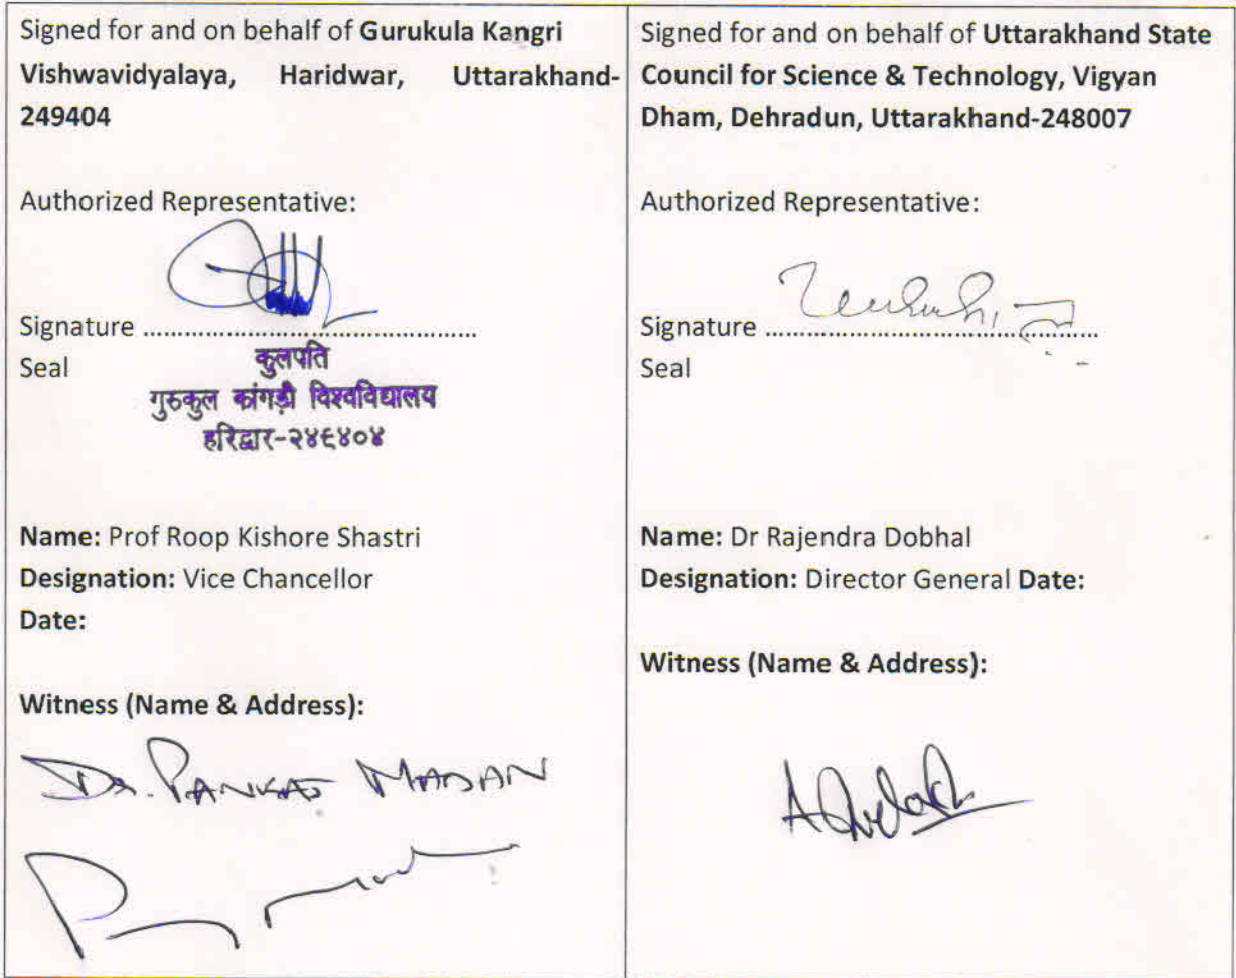 Signed for and on behalf of Gurukula Kangri
Vishwavidyalaya, Haridwar, Uttarakhand-
249404
Authorized Representative:
Signature ................................................
Seal
कुलपति
गुरुकुल कांगड़ी विश्वविद्यालय
हरिद्वार-२४९४०४
Name: Prof Roop Kishore Shastri
Designation: Vice Chancellor
Date:
Witness (Name & Address):
Dr. PANKAJ MADAN
Signed for and on behalf of Uttarakhand State
Council for Science & Technology, Vigyan
Dham, Dehradun, Uttarakhand-248007
Authorized Representative:
Signature ................................................
Seal
Name: Dr Rajendra Dobhal
Designation: Director General Date:
Witness (Name & Address):